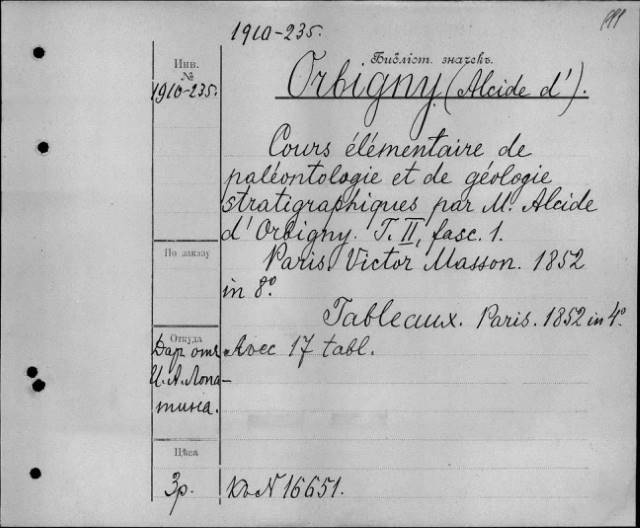 1910-235.
Инв.
№
1910-235.
Библіот. значекъ.
Orbigny (Alcide d').
Cours élémentaire de
paléontologie et de géologie
stratigraphiques par M. Alcide
d'Orbigny. T. II, fasc. 1.
Paris. Victor Masson. 1852
in 8º.
Tableaux. Paris. 1852 in 4º.
По заказу
Откуда
Даръ отъ
И. А. Лопа-
тина.
Avec 17 tabl.
Цѣна
3р.
къ N 16651.